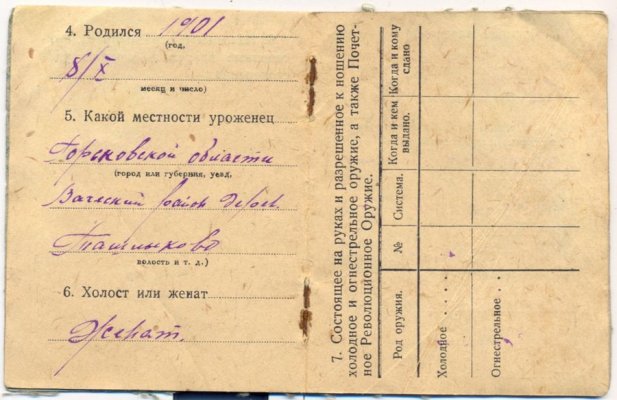 4. Родился 1901
(год,
8/X
месяц и число)
5. Какой местности уроженец
Горьковской области
(город или губерния, уезд,
Вачский район дер.
Ташлыково
волость и т. д.)
6. Холост или женат
Женат.
7. Состоящее на руках и разрешенное к ношению
холодное и огнестрельное оружие, а также Почет-
ное Революционное Оружие.
Род оружия. № Система. Когда и кем выдано. Когда и кому сдано
Холодное . . . .
Огнестрельное . .